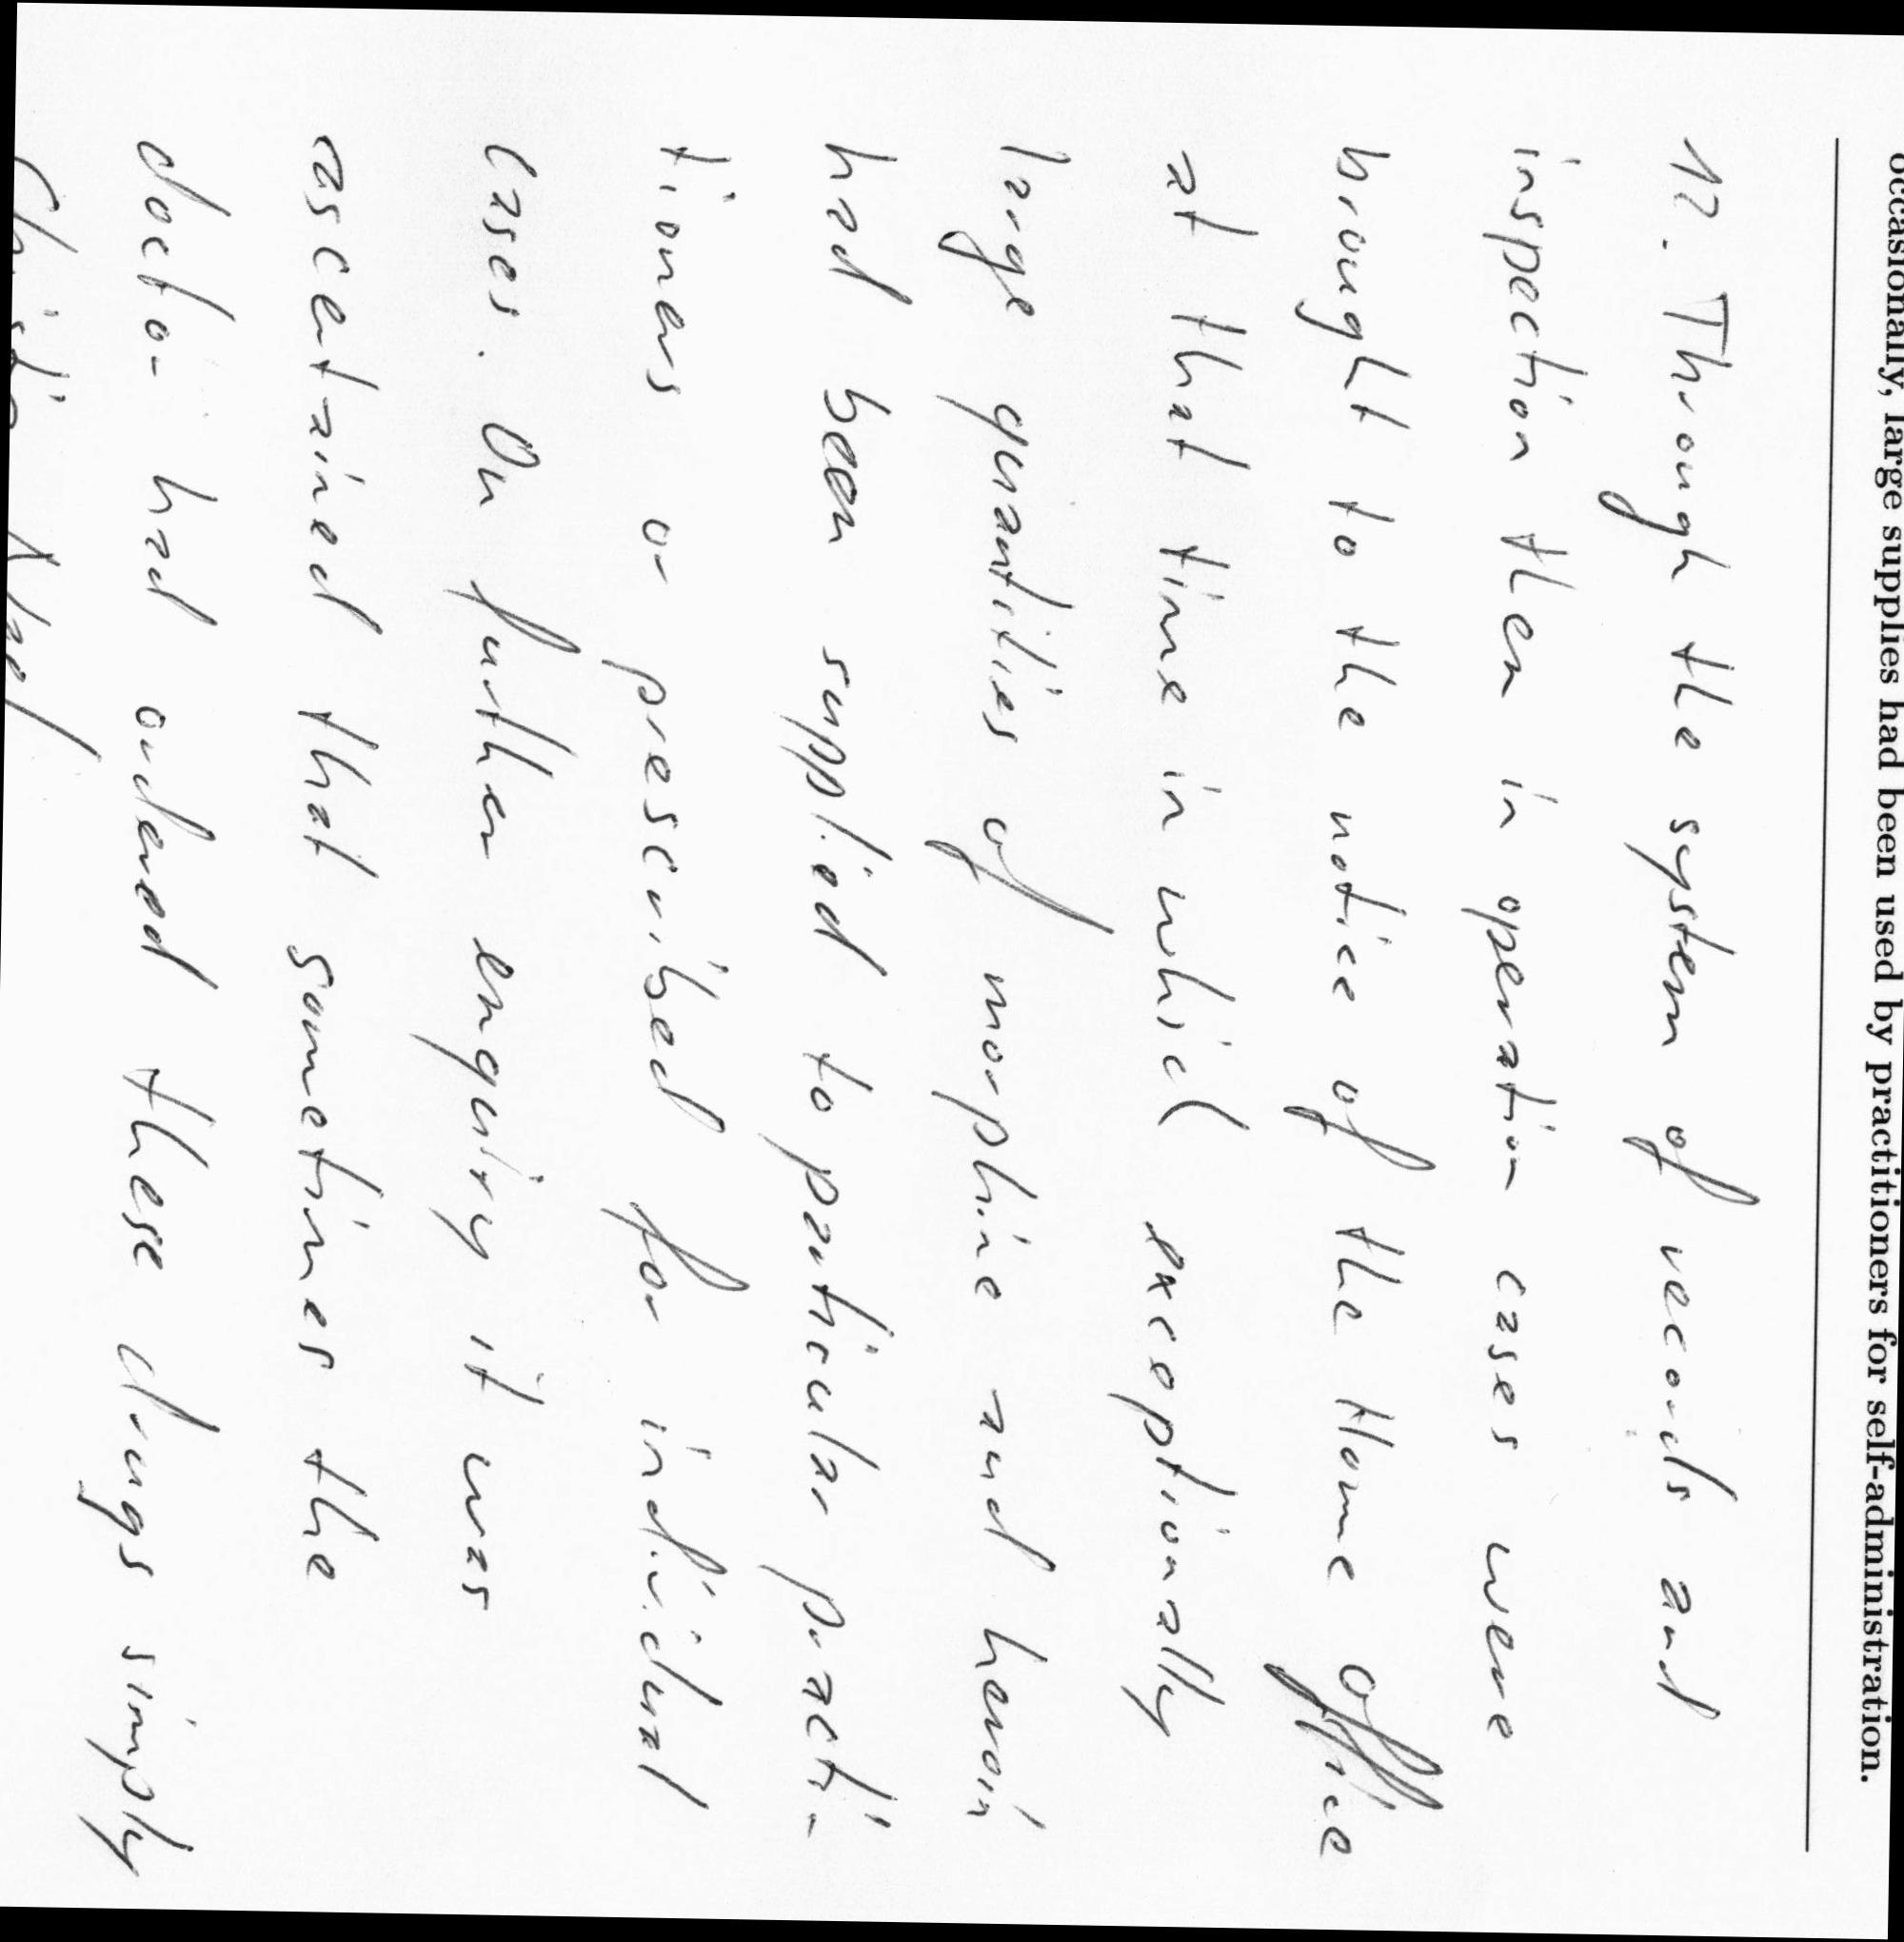 occasionally, large supplies had been used by practitioners for self-administration.
12. Through the system of records and
inspection then in operation cases were
brought to the notice of the Home Office
at that time in which exceptionally
large quantities of morphine and heroin
had been supplied to particular practi-
tioners or prescribed for individual
cases. On further enquiry it was
ascertained that sometimes the
doctor had ordered these drugs simply